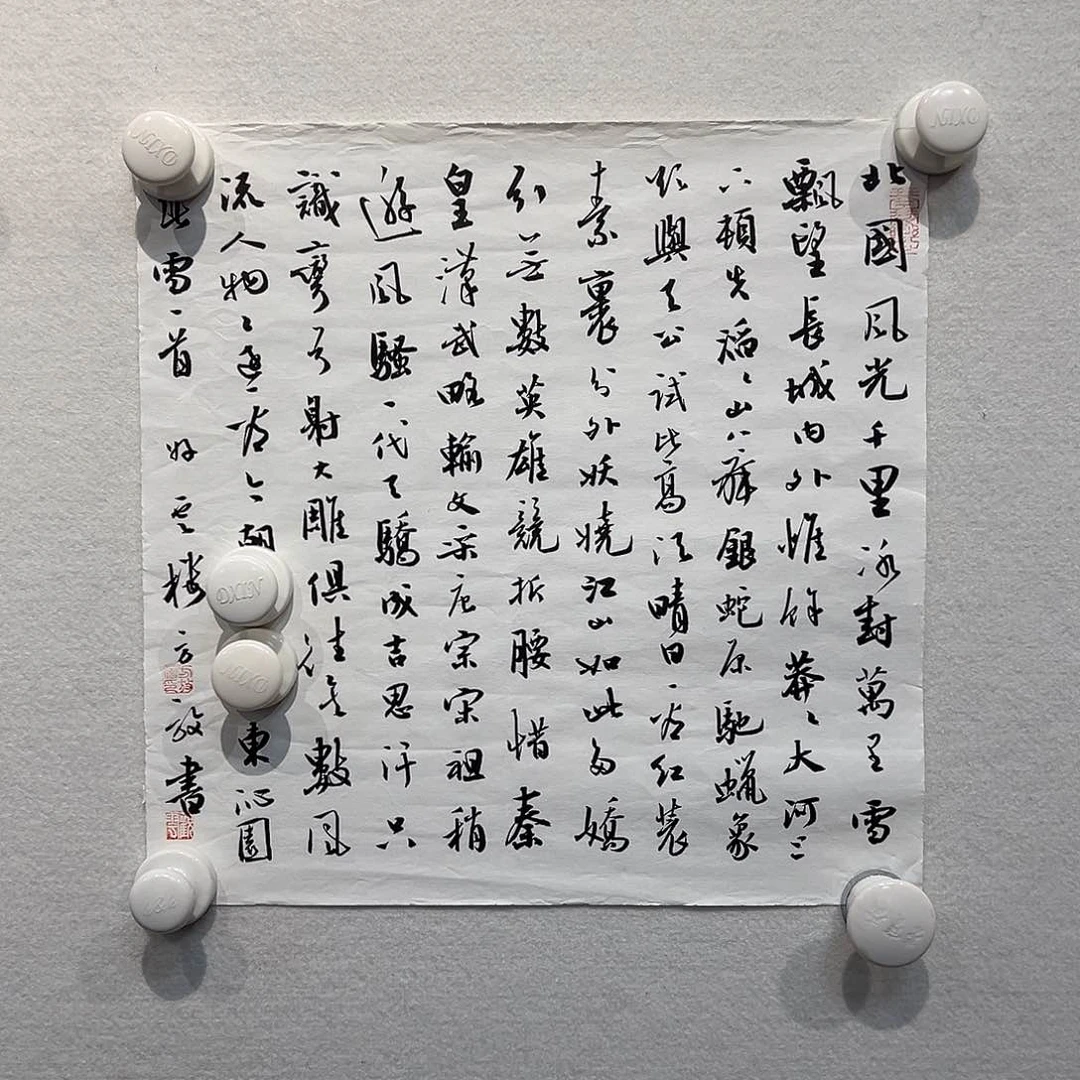 北國風光千里冰封萬里雪
飄望長城内外惟餘莽々大河上
下頓失滔々山舞銀蛇原馳蠟象
欲與天公試比高須晴日看紅裝
素裹分外妖嬈江山如此多嬌
引無數英雄競折腰惜秦
皇漢武略輸文采唐宗宋祖稍
遜風騷一代天驕成吉思汗只
識彎弓射大雕俱往矣數風
流人物々還看今朝 東沁園
雪一首 好雲楼方 書